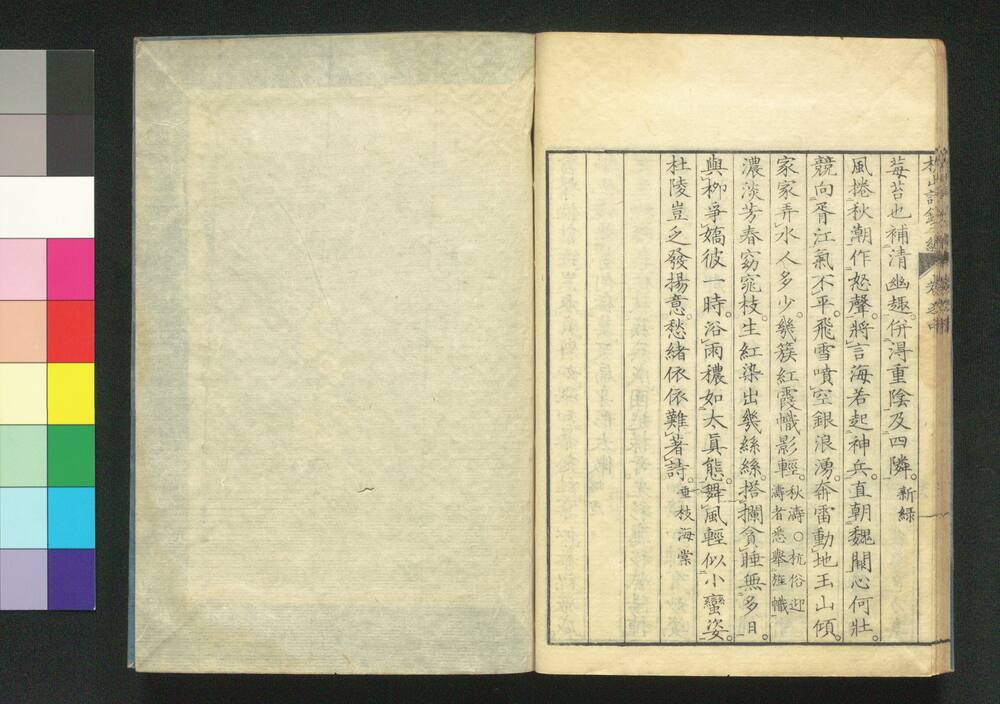 莓苔也補清幽趣。併得重陰及四隣。新緑
風捲秋潮作怒聲。將言海若起神兵。直朝魏闕心何壯。
競向胥江氣不平。飛雪噴空銀浪湧。奔雷動地玉山傾。
家家弄水人多少。幾簇紅霞幟影輕。秋濤○杭俗迎濤者悉擧
濃淡芳春窈窕枝。生紅染出幾絲絲。搭攔貪睡無多日。
與柳爭嬌彼一時。浴雨穠如太眞態。舞風輕似小蠻姿。
杜陵豈乏發揚意。愁緒依依難著詩。垂枝海棠